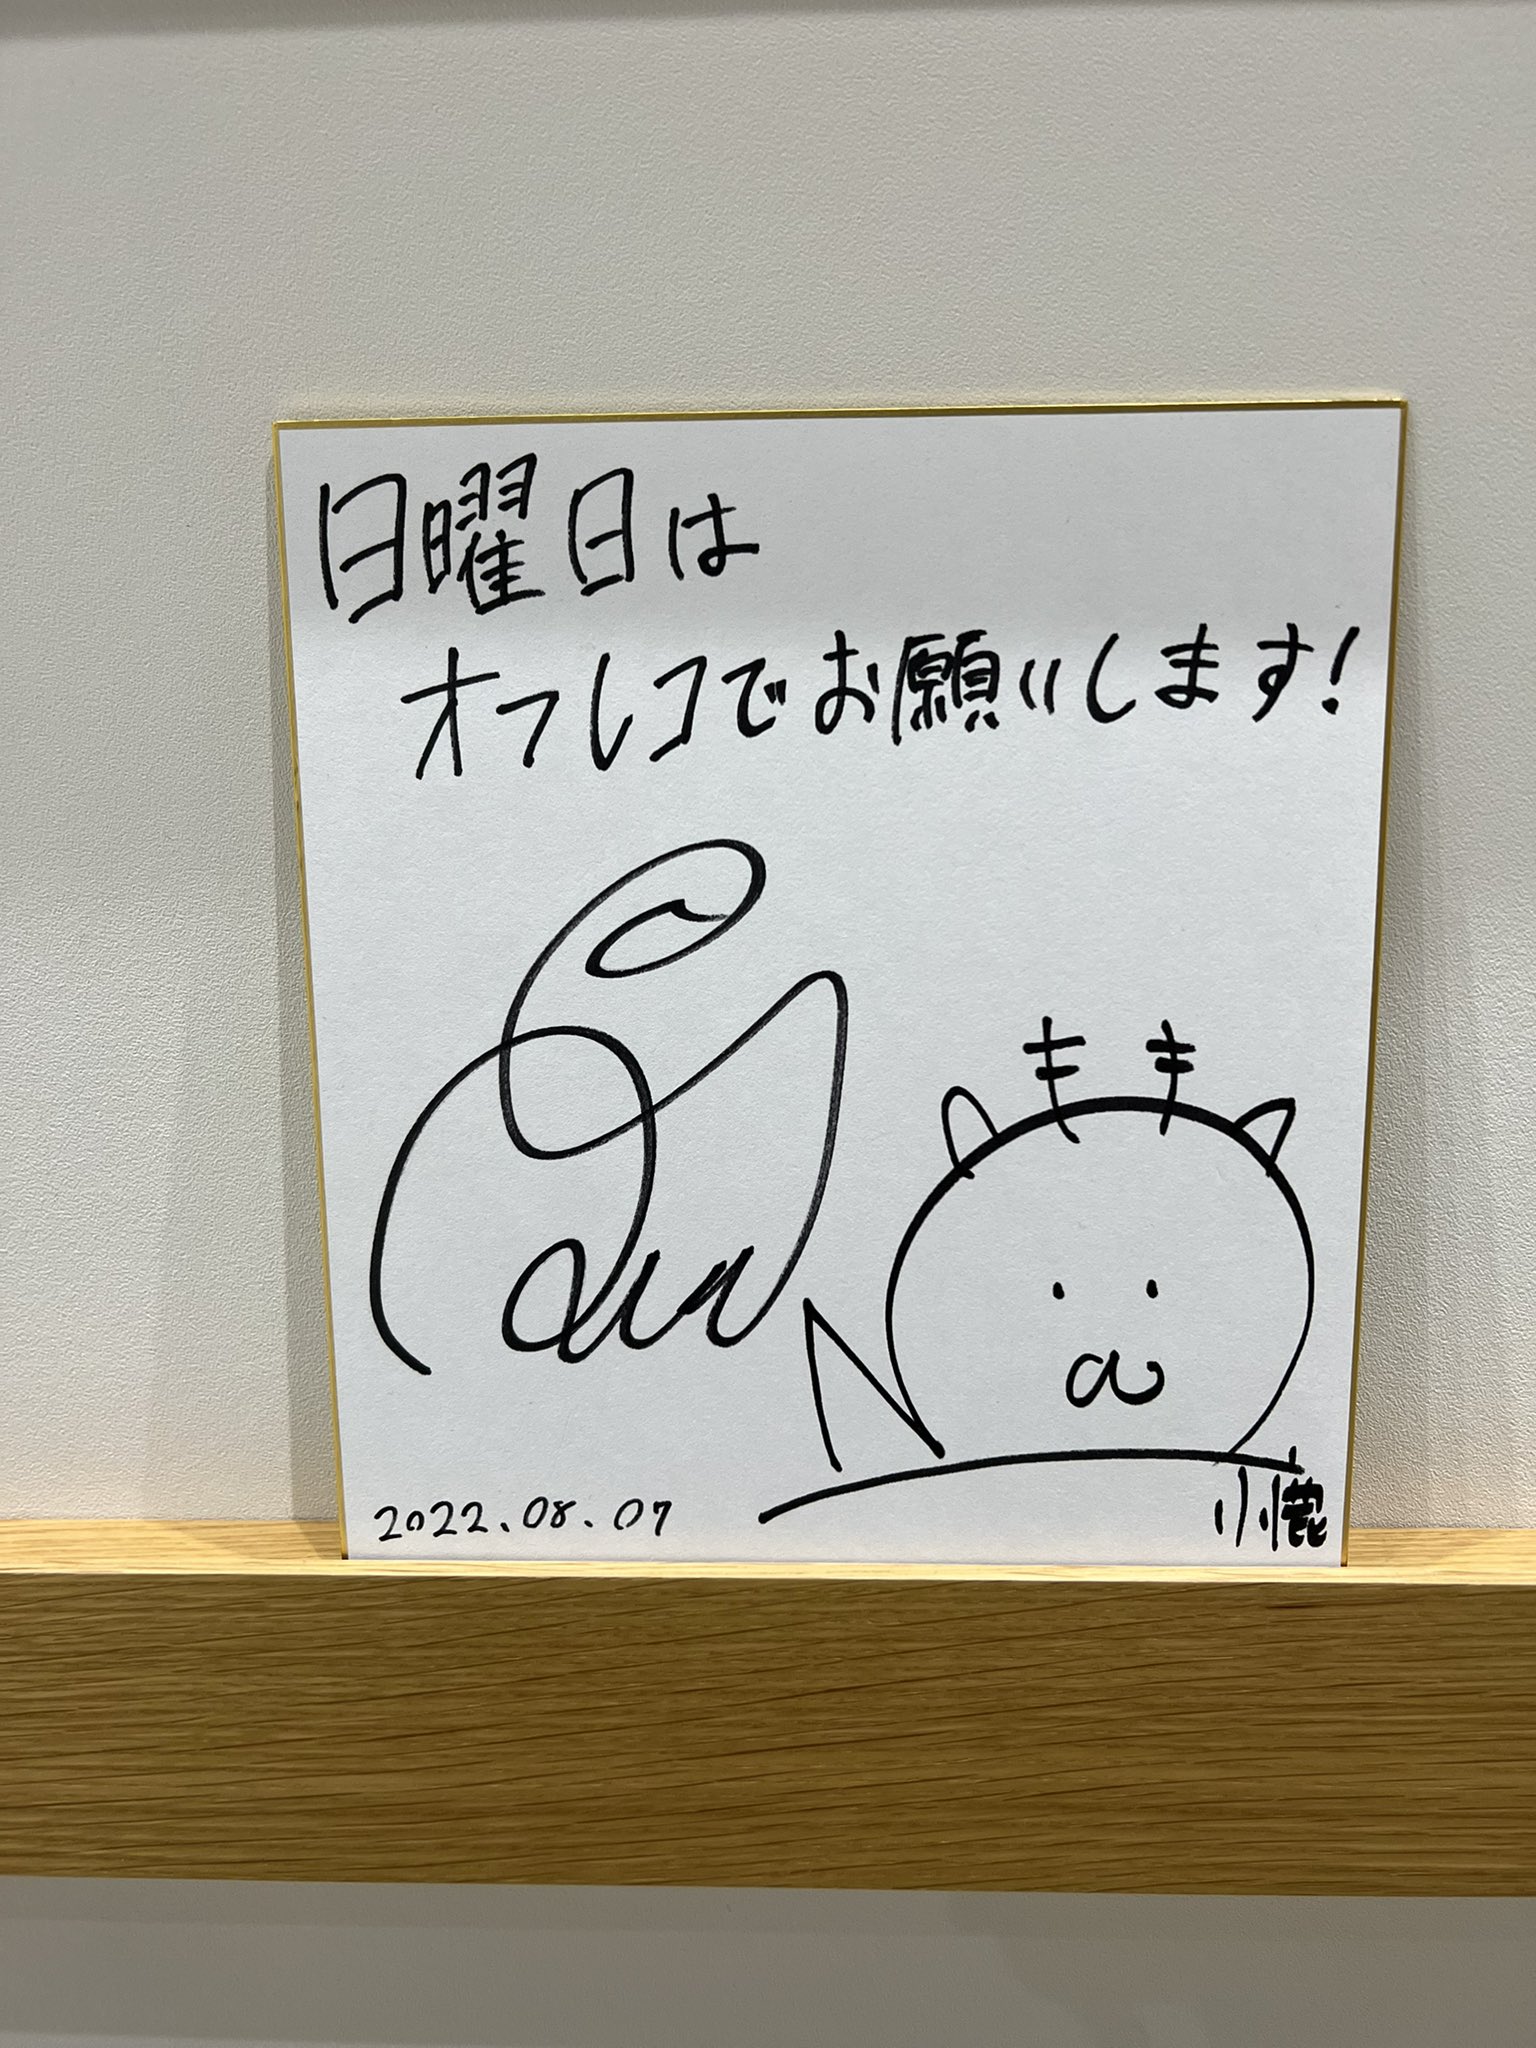 日曜日は
オフレコでお願いします!
2022.08.07